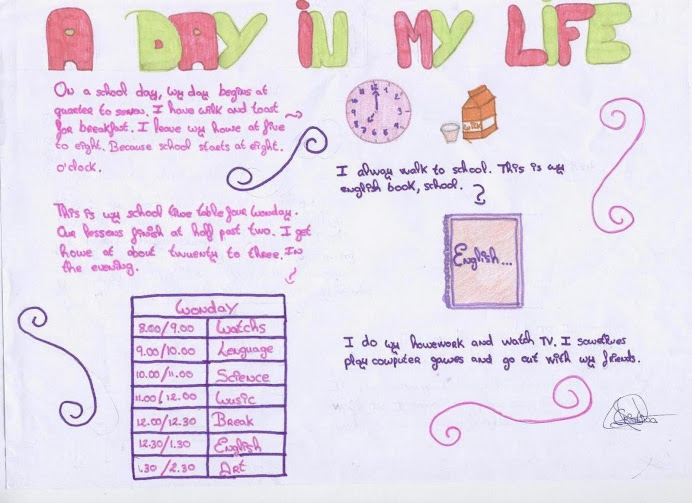 A DAY IN MY LIFE
On a school day, my day begins at
quarter to seven. I have milk and toast
for breakfast. I leave my home at five
to eight. Because school starts at eight.
o'clock.
I alway walk to school. This is my
english book, school.
This is my school time table four monday.
Our lessons finish at half past two. I get
home at about twuenty to three. In
the evening.
English...
monday
8.00/9.00 Matchs
9.00/10.00 Lenguage
10.00/11.00 Science
11.00/12.00 Music
12.00/12.30 Break
12.30/1.30 English
1.30/2.30 Art
I do my homework and watch TV. I sometimes
play computer games and go out with my friends.